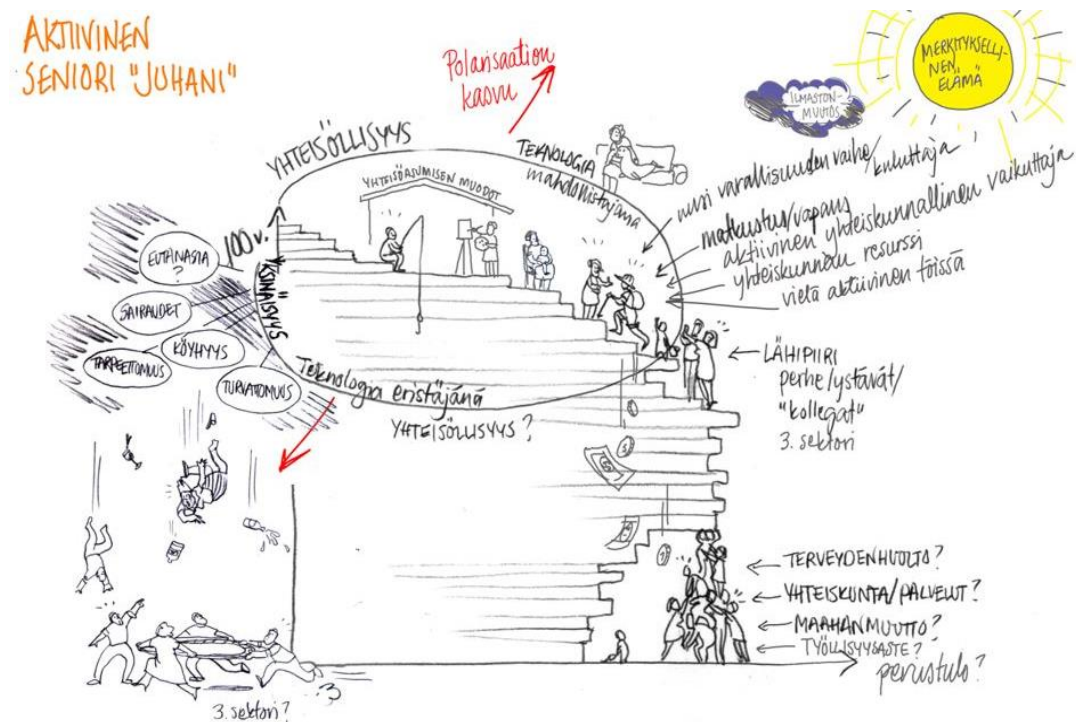 AKTIIVINEN
SENIORI "JUHANI"
Polarisaation
kasvu
MERKITYKSELLI-
NEN
ELÄMÄ
ILMASTON-
MUUTOS
YHTEISÖLLISYYS
TEKNOLOGIA
mahdollistajana
YHTEISÖASUMISEN MUODOT
uusi varallisuuden vaihe/kuluttaja
matkustus/vapaus
aktiivinen yhteiskunnallinen vaikuttaja
yhteiskunnan resurssi
vielä aktiivinen töissä
100 v.
EUTANASIA
?
YKSINÄISYYS
SAIRAUDET
KÖYHYYS
TARPEETTOMUUS
TURVATTOMUUS
Teknologia eristäjänä
YHTEISÖLLISYYS?
LÄHIPIIRI
perhe/ystävät/
"kollegat"
3. sektori
TERVEYDENHUOLTO?
YHTEISKUNTA/PALVELUT?
MAAHANMUUTTO?
TYÖLLISYYSASTE?
perustulo?
3. sektori?